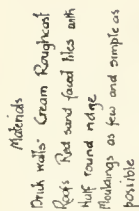 Materials
Brick walls - Cream Roughcast
Roofs Red sand faced tiles with
Half round ridge
Mouldings as few and simple as
possible